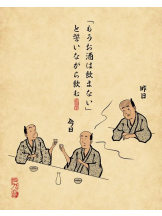 「もうお酒は飲まない」
と誓いながら飲む
昨日
今日